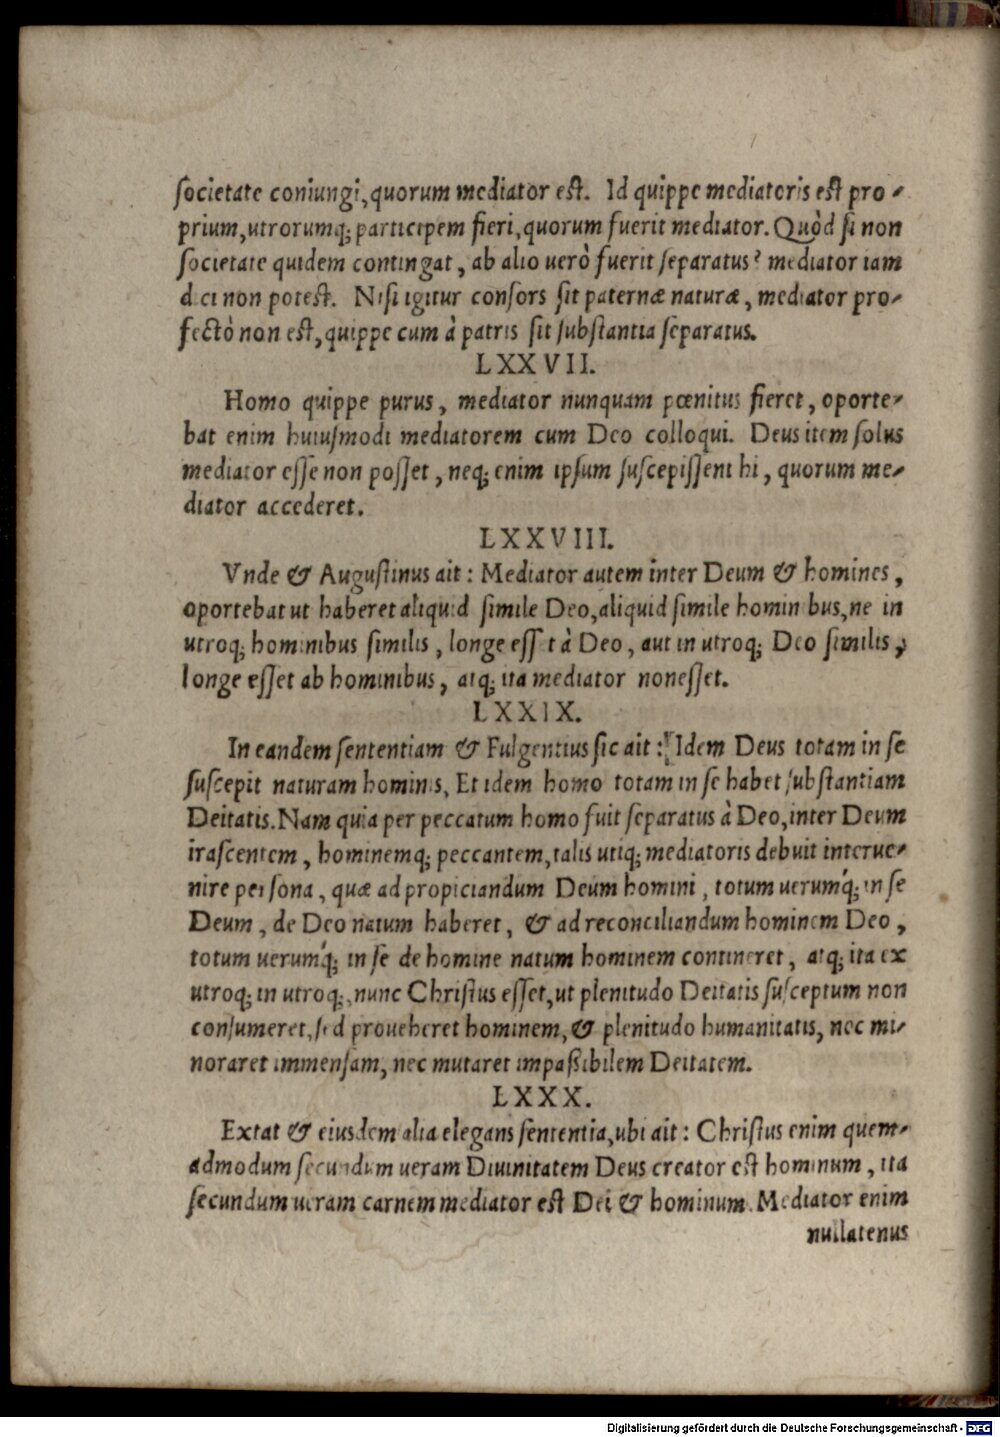 societate coniungi, quorum mediator est. Id quippe mediatoris est pro-
prium, utrorumq; participem fieri, quorum fuerit mediator. Quòd si non
societate quidem contingat, ab alio uerò fuerit separatus? mediator iam
dici non potest. Nisi igitur consors sit paternæ naturæ, mediator pro-
fectò non est, quippe cum à patris sit substantia separatus.
LXXVII.
Homo quippe purus, mediator nunquam pœnitus fieret, oporte-
bat enim huiusmodi mediatorem cum Deo colloqui. Deus item solus
mediator esse non posset, neq; enim ipsum suscepissent hi, quorum me-
diator accederet.
LXXVIII.
Vnde & Augustinus ait: Mediator autem inter Deum & homines,
oportebat ut haberet aliquid simile Deo, aliquid simile hominibus, ne in
utroq; hominibus similis, longe esset à Deo, aut in utroq; Deo similis,
longe esset ab hominibus, atq; ita mediator non esset.
LXXIX.
In eandem sententiam & Fulgentius sic ait: Idem Deus totam in se
suscepit naturam hominis, Et idem homo totam in se habet substantiam
Deitatis. Nam quia per peccatum homo fuit separatus à Deo, inter Deum
irascentem, hominemq; peccantem, talis utiq; mediatoris debuit interue-
nire persona, quæ ad propiciandum Deum homini, totum uerumq́; in se
Deum, de Deo natum haberet, & ad reconciliandum hominem Deo,
totum uerumq́; in se de homine natum hominem contineret, atq; ita ex
utroq; in utroq;, nunc Christus esset, ut plenitudo Deitatis susceptum non
consumeret, sed proueheret hominem, & plenitudo humanitatis, nec mi-
noraret immensam, nec mutaret impassibilem Deitatem.
LXXX.
Extat & eiusdem alia elegans sententia, ubi ait: Christus enim quem-
admodum secundum ueram Diuinitatem Deus creator est hominum, ita
secundum ueram carnem mediator est Dei & hominum. Mediator enim
nullatenus
Digitalisierung gefördert durch die Deutsche Forschungsgemeinschaft - DFG